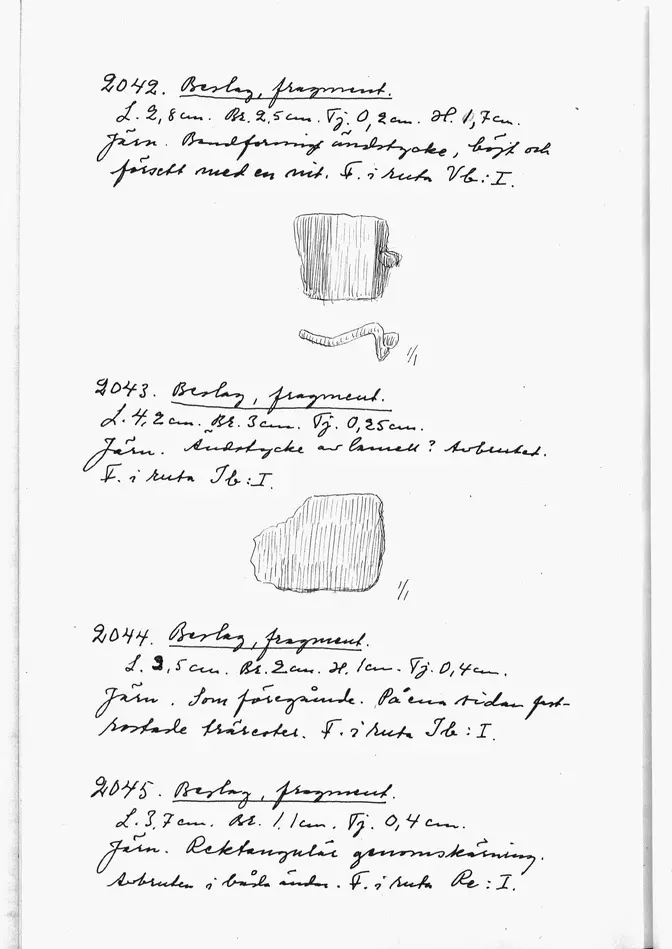 2042. Beslag, fragment.
L. 2,8 cm. Br. 2,5 cm. Tj. 0,2 cm. H. 1,7 cm.
Järn. Bandformigt ändstycke, böjt och
försett med en nit. F. i ruta Vb: I.
1/1
2043. Beslag, fragment.
L. 4,2 cm. Br. 3 cm. Tj. 0,25 cm.
Järn. Ändstycke av lamell? Avbrutet.
F. i ruta Ib: I.
1/1
2044. Beslag, fragment.
L. 3,5 cm. Br. 2 cm. H. 1 cm. Tj. 0,4 cm.
Järn. Som föregående. På ena sidan fast-
rostade trärester. F. i ruta Ib: I.
2045. Beslag, fragment.
L. 3,7 cm. Br. 1,1 cm. Tj. 0,4 cm.
Järn. Rektangulär genomskärning.
Avbruten i båda ändar. F. i ruta Re: I.